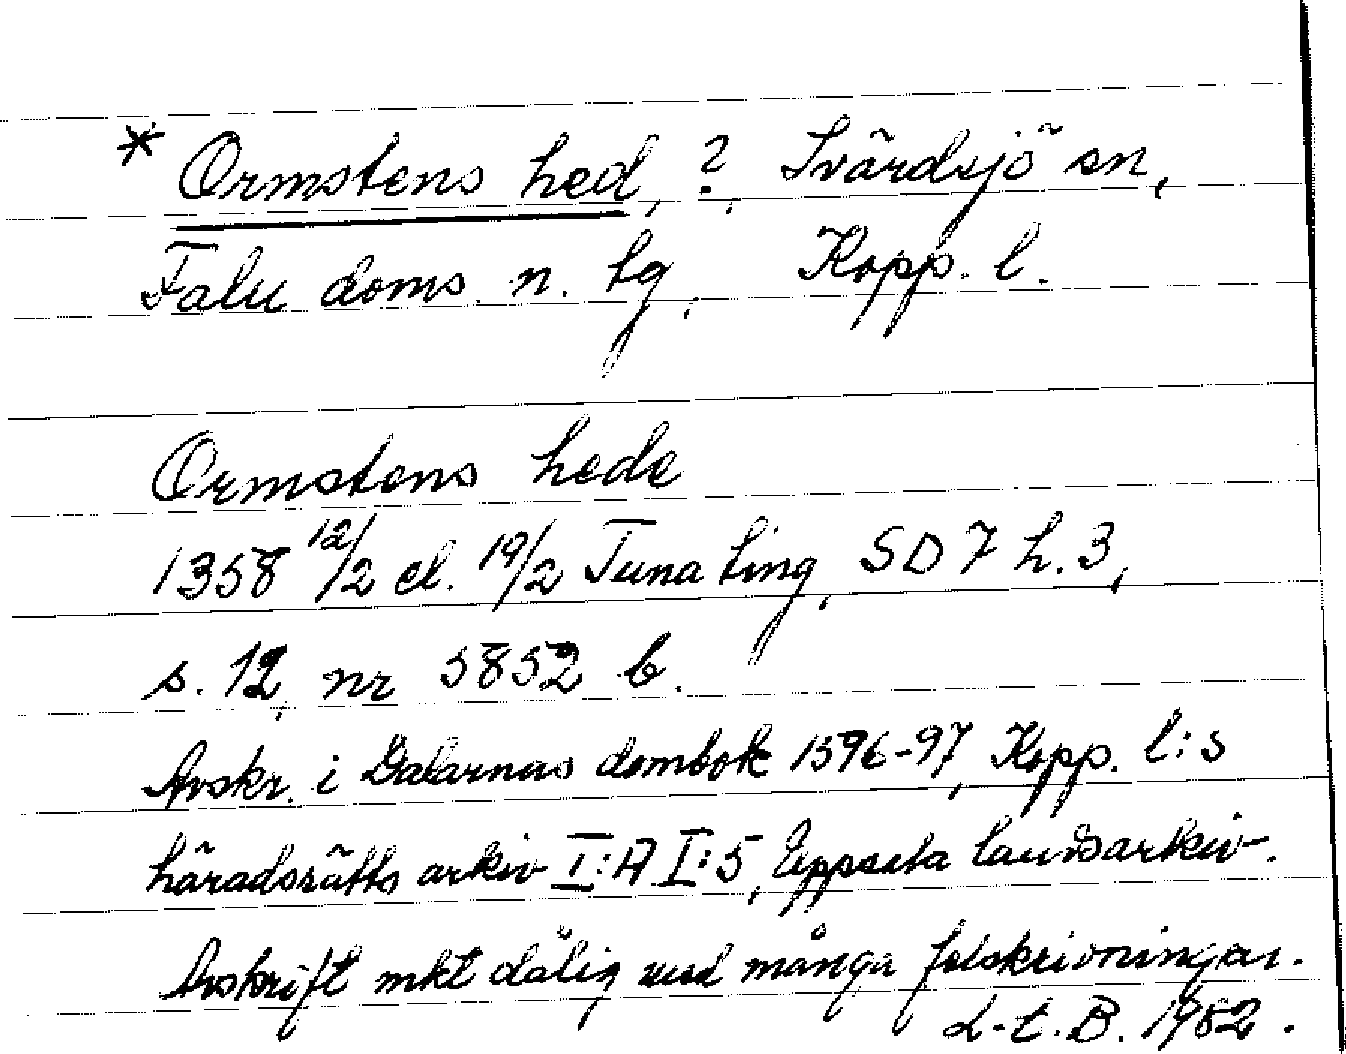 * Ormstens hed, ?, Svärdsjö sn,
Falu doms. n. tg, Kopp. l.
Ormstens hede
1358 12/2 el. 19/2 Tuna ting, SD 7 h. 3,
s. 12, nr 5852 b.
Avskr. i Dalarnas dombok 1596-97, Kopp. l:s
häradsrätts arkiv I:A I:5, Uppsala landsarkiv.
Avskrift mkt dålig med många felskrivningar.
L-E. B. 1982.